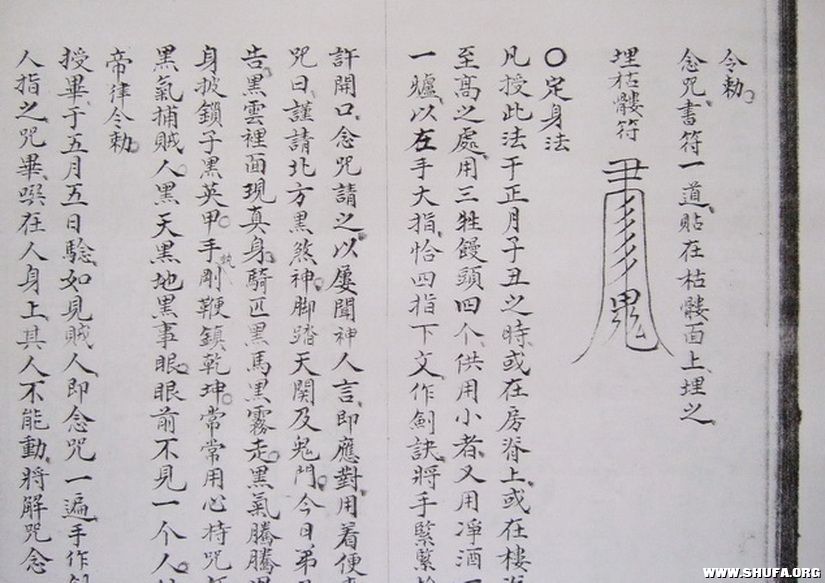 令勅
念咒書符一道貼在枯髏面上埋之
埋枯髏符
鬼
〇定身法
凡授此法于正月子丑之時或在房脊上或在樓
至高之處用三牲饅頭四个供用小者又用凈酒
一爐以在手大指恰四指下文作劍訣將手緊
許開口念咒請之以屡聞神人言即應對用着便
咒曰謹請北方黑煞神脚踏天関及鬼門今日弟
告黑雲裡面現真身騎匹黑馬黑霧走黑氣騰騰
身披鎖子黑英甲手執剛鞭鎮乾坤常常用心持咒
黑氣捕賊人黑天黑地黑事眼眼前不見一个人
帝律令勅
授畢于五月五日驗如見賊人即念咒一遍手作劍
人指之咒畢噀在人身上其人不能動將解咒念
WWW.SHUFA.ORG